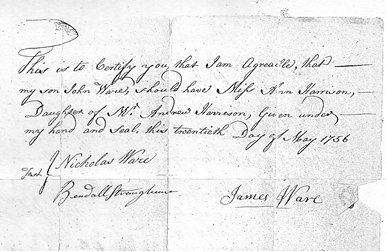 This is to Certify you, that I am Agreable, that —
my son John Ware, should have Miss Ann Harrison, —
Daughter of Mr. Andrew Harrison, Given under
my hand and Seal, this twentieth Day of May 1756
Test { Nicholas Ware
James Ware